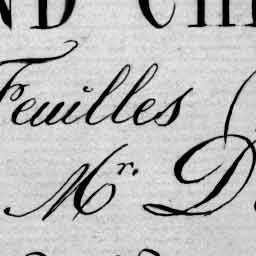 ND CHE
Feuilles (
Mr. D